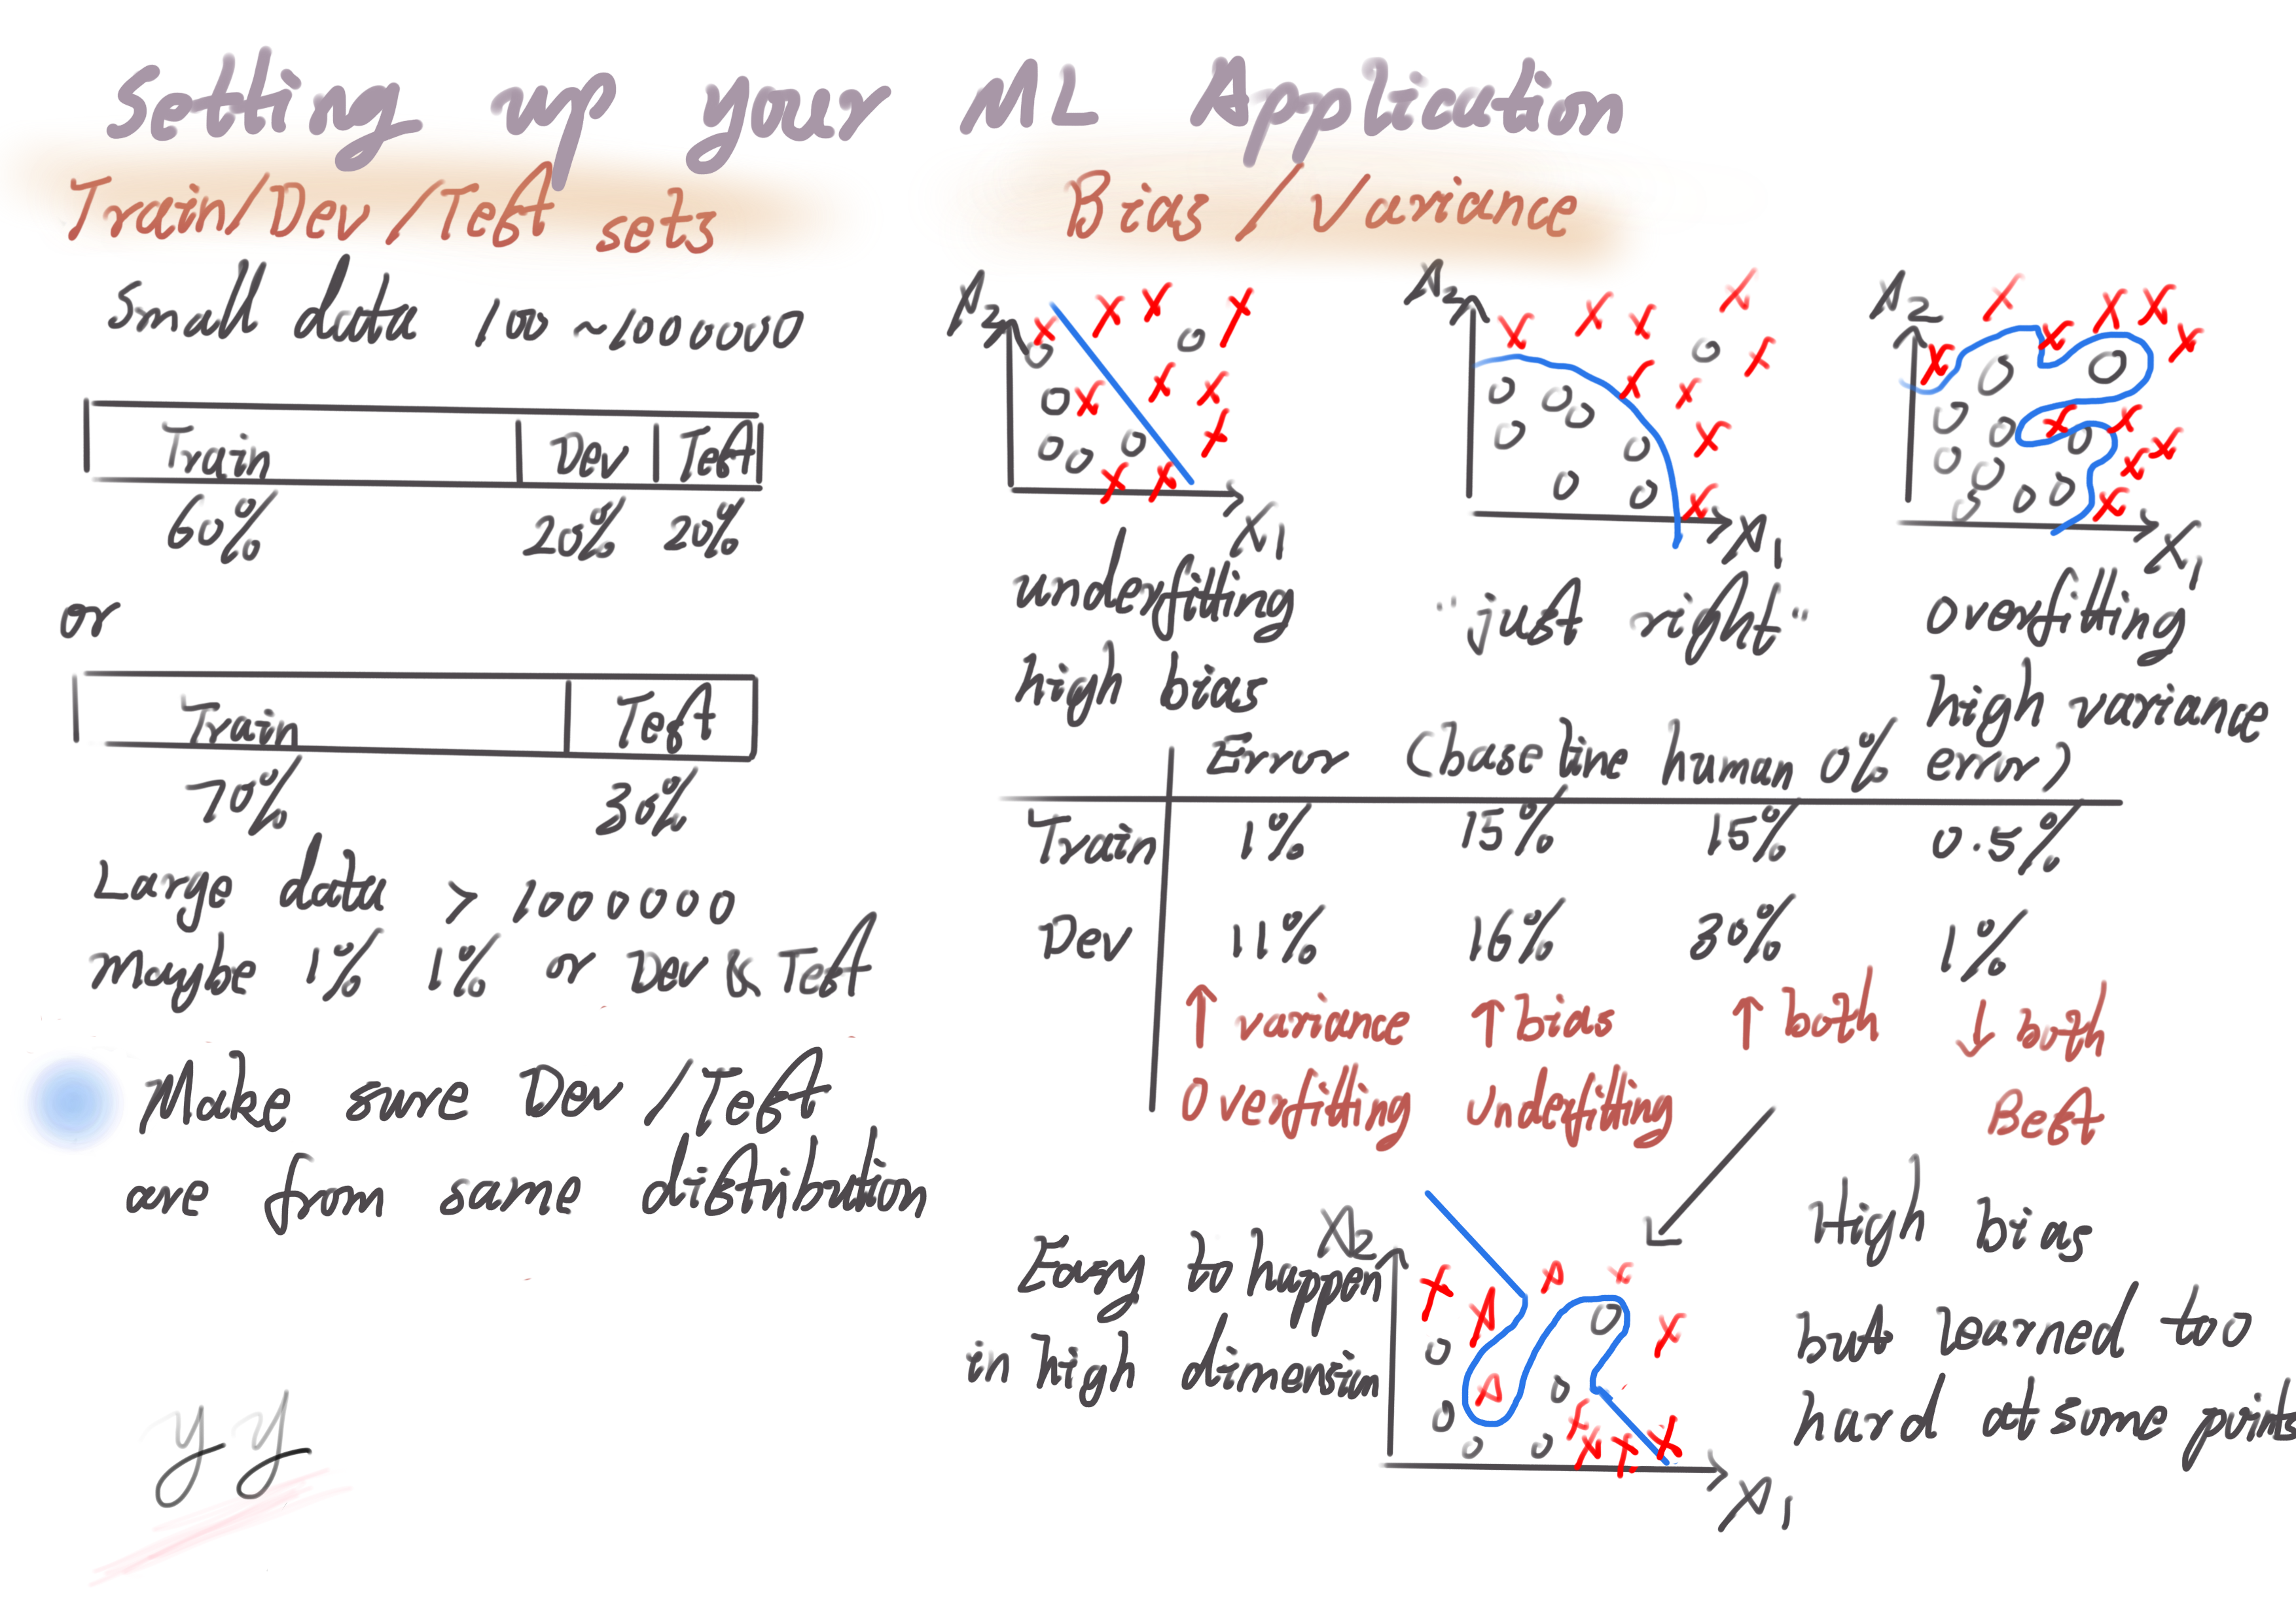 Setting up your ML Application
Train/Dev/Test sets
Small data 100 ~1000000
Train Dev Test
60% 20% 20%
or
Train Test
70% 30%
Large data > 1000000
Maybe 1% 1% or Dev & Test
Make sure Dev/Test
are from same distribution
yy
Bias/Variance
X2
X1
underfitting
high bias
X2
X1
"just right"
X2
X1
overfitting
high variance
Error (base line human 0% error)
Train 1% 15% 15% 0.5%
Dev 11% 16% 30% 1%
↑ variance ↑ bias ↑ both ↓ both
Overfitting Underfitting Best
Easy to happen
in high dimension
X2
X1
High bias
but learned too
hard at some points